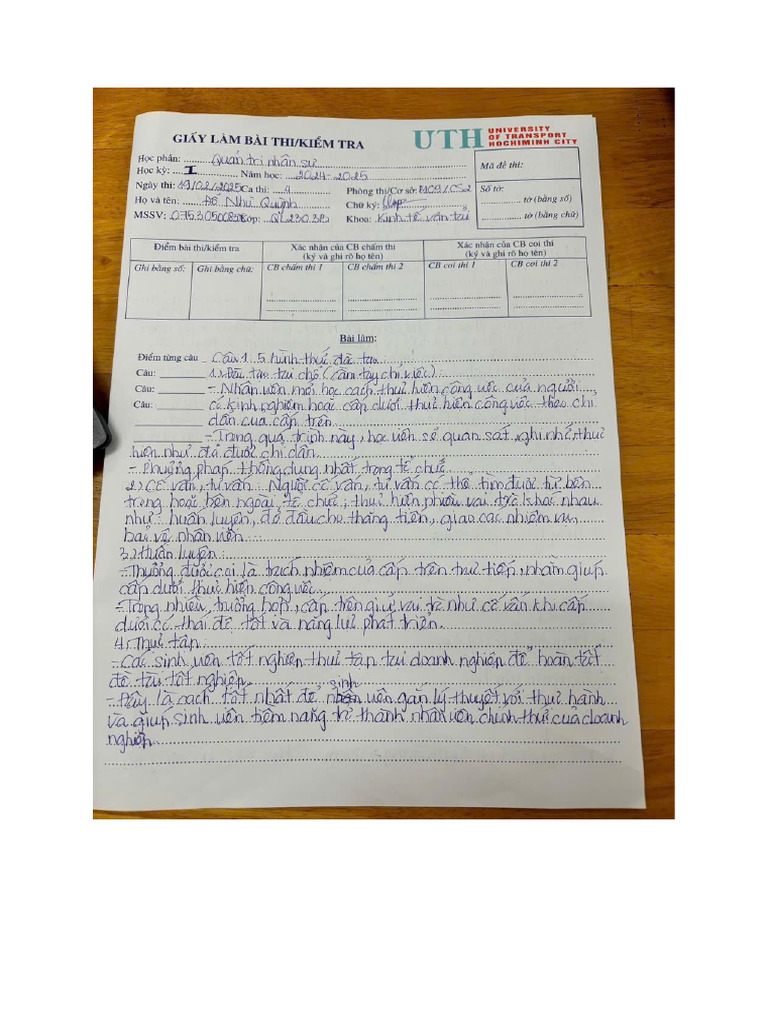 GIẤY LÀM BÀI THI/KIỂM TRA
UTH UNIVERSITY OF TRANSPORT HOCHIMINH CITY
Học phần: Quản trị nhân sự
Học kỳ: I Năm học: 2024-2025
Ngày thi: 19/02/2025 Ca thi: 4 Phòng thi/Cơ sở:
Họ và tên: Đỗ Như Quỳnh Chữ ký:
MSSV: Lớp: Khoa: Kinh tế vận tải
Mã đề thi:
Số tờ:
tờ (bằng số)
tờ (bằng chữ)
Điểm bài thi/kiểm tra Xác nhận của CB chấm thi (ký và ghi rõ họ tên) Xác nhận của CB coi thi (ký và ghi rõ họ tên)
Ghi bằng số: Ghi bằng chữ: CB chấm thi 1 CB chấm thi 2 CB coi thi 1 CB coi thi 2
Bài làm:
Điểm từng câu Câu 1. 5 hình thức đào tạo
Câu: 1.) Đào tạo tại chỗ (cầm tay chỉ việc)
Câu: - Nhân viên mới học cách thực hiện công việc của người
Câu: có kinh nghiệm hoặc cấp dưới thực hiện công việc theo chỉ
dẫn của cấp trên
- Trong quá trình này, học viên sẽ quan sát, ghi nhớ, thực
hiện như đã được chỉ dẫn
- Phương pháp thông dụng nhất trong tổ chức
2.) Cố vấn, tư vấn: Người cố vấn, tư vấn có thể tìm được từ bên
trong hoặc bên ngoài tổ chức, thực hiện nhiều vai trò khác nhau
như: huấn luyện, đỡ đầu cho thăng tiến, giao các nhiệm vụ,
bảo vệ nhân viên
3.) Huấn luyện:
- Thường được coi là trách nhiệm của cấp trên trực tiếp, nhằm giúp
cấp dưới thực hiện công việc.
- Trong nhiều trường hợp, cấp trên giữ vai trò như cố vấn khi cấp
dưới có thái độ tốt và năng lực phát triển.
4. Thực tập:
- Các sinh viên tốt nghiệp thực tập tại doanh nghiệp để hoàn tất
đề tài tốt nghiệp.
- Đây là cách tốt nhất để sinh viên gắn lý thuyết với thực hành
và giúp sinh viên tiềm năng trở thành nhân viên chính thức của doanh
nghiệp